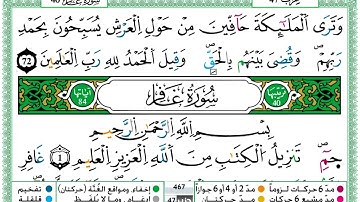 وَتَرَى الْمَلَٰٓئِكَةَ حَآفِّينَ مِنْ حَوْلِ الْعَرْشِ يُسَبِّحُونَ بِحَمْدِ
رَبِّهِمْ وَقُضِىَ بَيْنَهُم بِالْحَقِّ وَقِيلَ الْحَمْدُ لِلَّهِ رَبِّ الْعَٰلَمِينَ 72
آياتها 84 سُورَةُ غَافِرٍ 40
بِسْمِ اللَّهِ الرَّحْمَٰنِ الرَّحِيمِ
حمٓ 1 تَنزِيلُ الْكِتَٰبِ مِنَ اللَّهِ الْعَزِيزِ الْعَلِيمِ غَافِرِ
مدّ 6 حركات لزوماً مدّ 2 أو 4 أو 6 جوازاً 467 إخفاء، ومواقع الغُنَّة (حركتان) تفخيم
مدّ مشبع 6 حركات مدّ حركتان 47 إدغام، وما لا يُلفَظ قلقلة